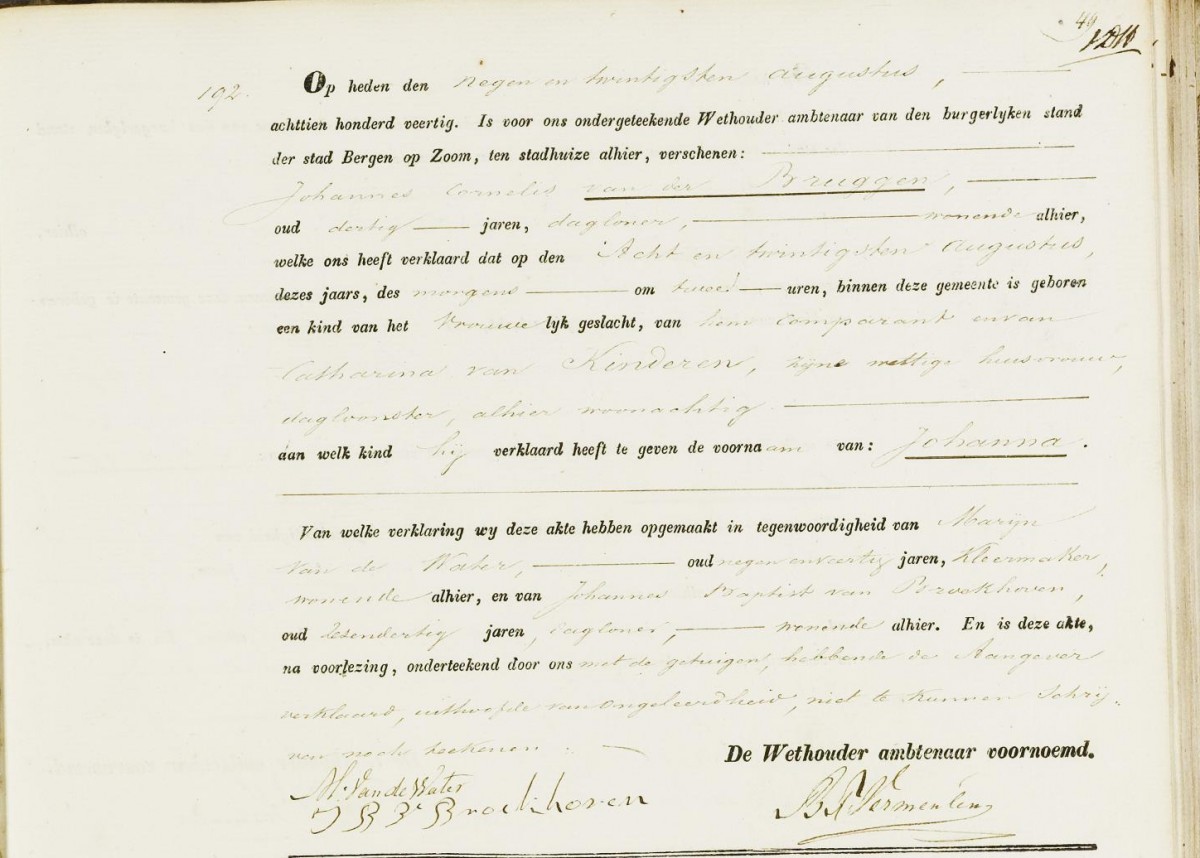 49
192.
Op heden den negen en twintigsten augustus,
achttien honderd veertig. Is voor ons ondergeteekende Wethouder ambtenaar van den burgerlyken stand
der stad Bergen op Zoom, ten stadhuize alhier, verschenen:
Johannes Cornelis van der Bruggen,
oud dertig jaren, dagloner, wonende alhier,
welke ons heeft verklaard dat op den Acht en twintigsten augustus,
dezes jaars, des morgens om twee uren, binnen deze gemeente is geboren
een kind van het Vrouwe lyk geslacht, van hem comparant en van
Catharina van Kinderen, zijne wettige huisvrouw,
dagloonster, alhier woonachtig.
aan welk kind hij verklaard heeft te geven de voornaam van: Johanna.
Van welke verklaring wy deze akte hebben opgemaakt in tegenwoordigheid van Marijn
van de Water, oud negen en veertig jaren, Kleermaker,
wonende alhier, en van Johannes Baptist van Broekhoven,
oud zesendertig jaren, dagloner, wonende alhier. En is deze akte,
na voorlezing, onderteekend door ons met de getuigen, hebbende de Aangever
verklaard, uithoofde van ongeleerdheid, niet te kunnen schrij-
ven noch teekenen.
De Wethouder ambtenaar voornoemd.
M. Van de Water
J B V Broekhoven
Vermeulen